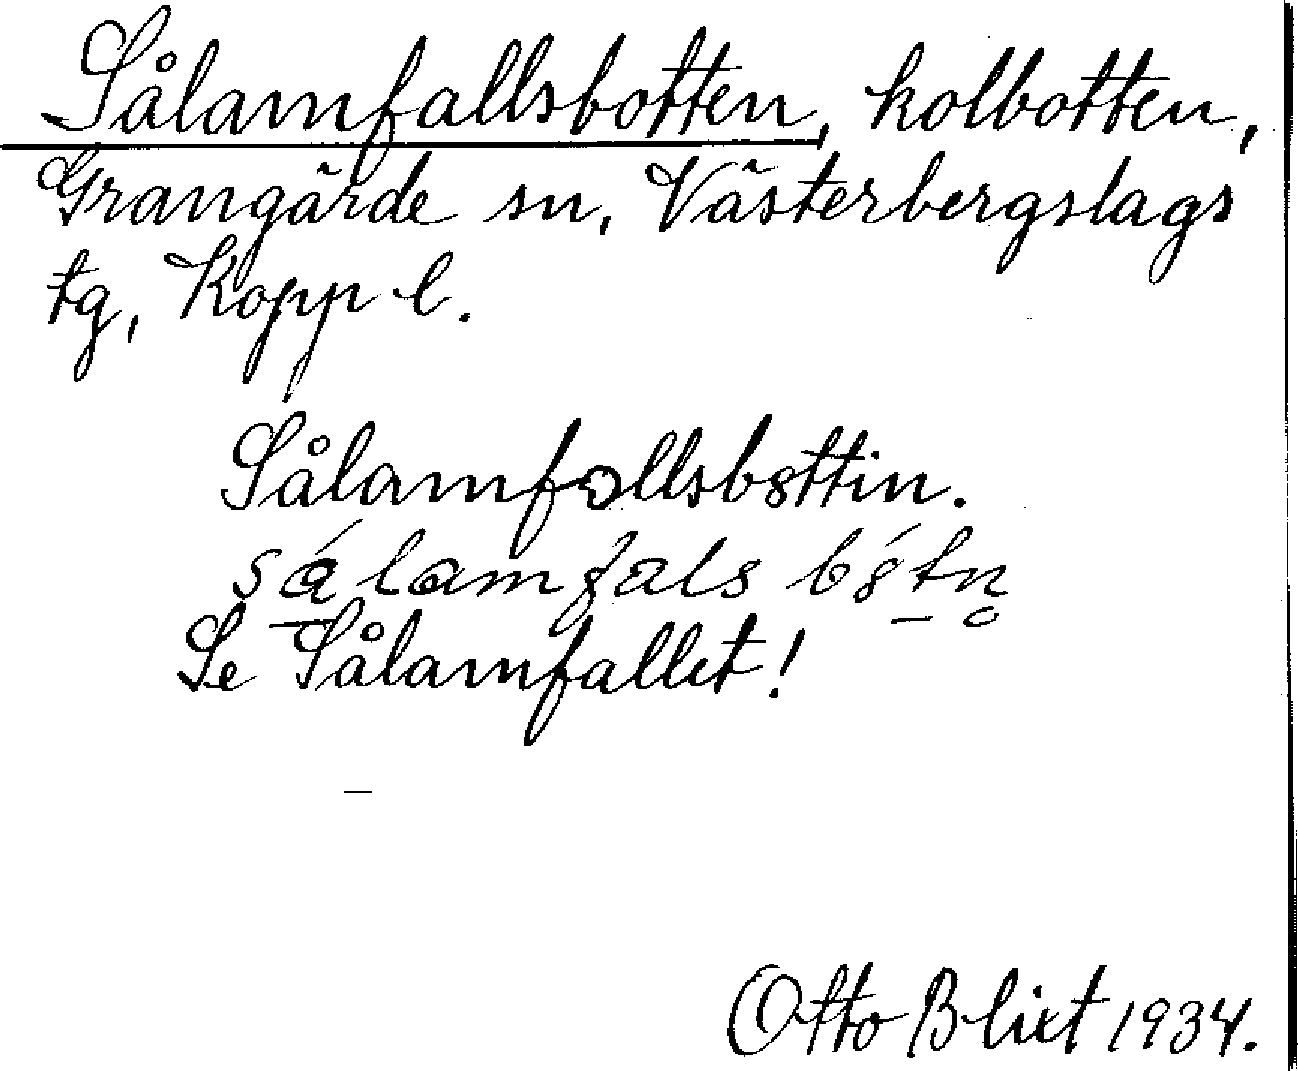 Sålamfallsbotten, kolbotten,
Grangärde sn, Västerbergslags
tg, Kopp l.
Sålamfallsbottin.
Se Sålamfallet!
Otto Blixt 1934.